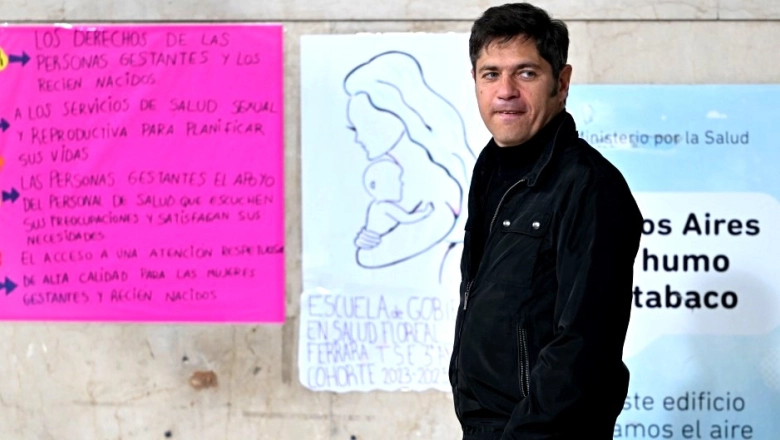 LOS DERECHOS DE LAS
PERSONAS GESTANTES Y LOS
RECIEN NACIDOS.
A LOS SERVICIOS DE SALUD SEXUAL
Y REPRODUCTIVA PARA PLANIFICAR
SUS VIDAS
LAS PERSONAS GESTANTES EL APOYO
DEL PERSONAL DE SALUD QUE ESCUCHEN
SUS PREOCUPACIONES Y SATISFAGAN SUS
NECESIDADES
EL ACCESO A UNA ATENCION RESPETUOSA
DE ALTA CALIDAD PARA LAS MUJERES
GESTANTES Y RECIEN NACIDOS
ESCUELA de GOBI
EN SALUD FLOREAL
FERRARA T S E 5°
COHORTE 2023-202
Ministerio por la Salud
os Aires
humo
tabaco
ste edificio
amos el aire